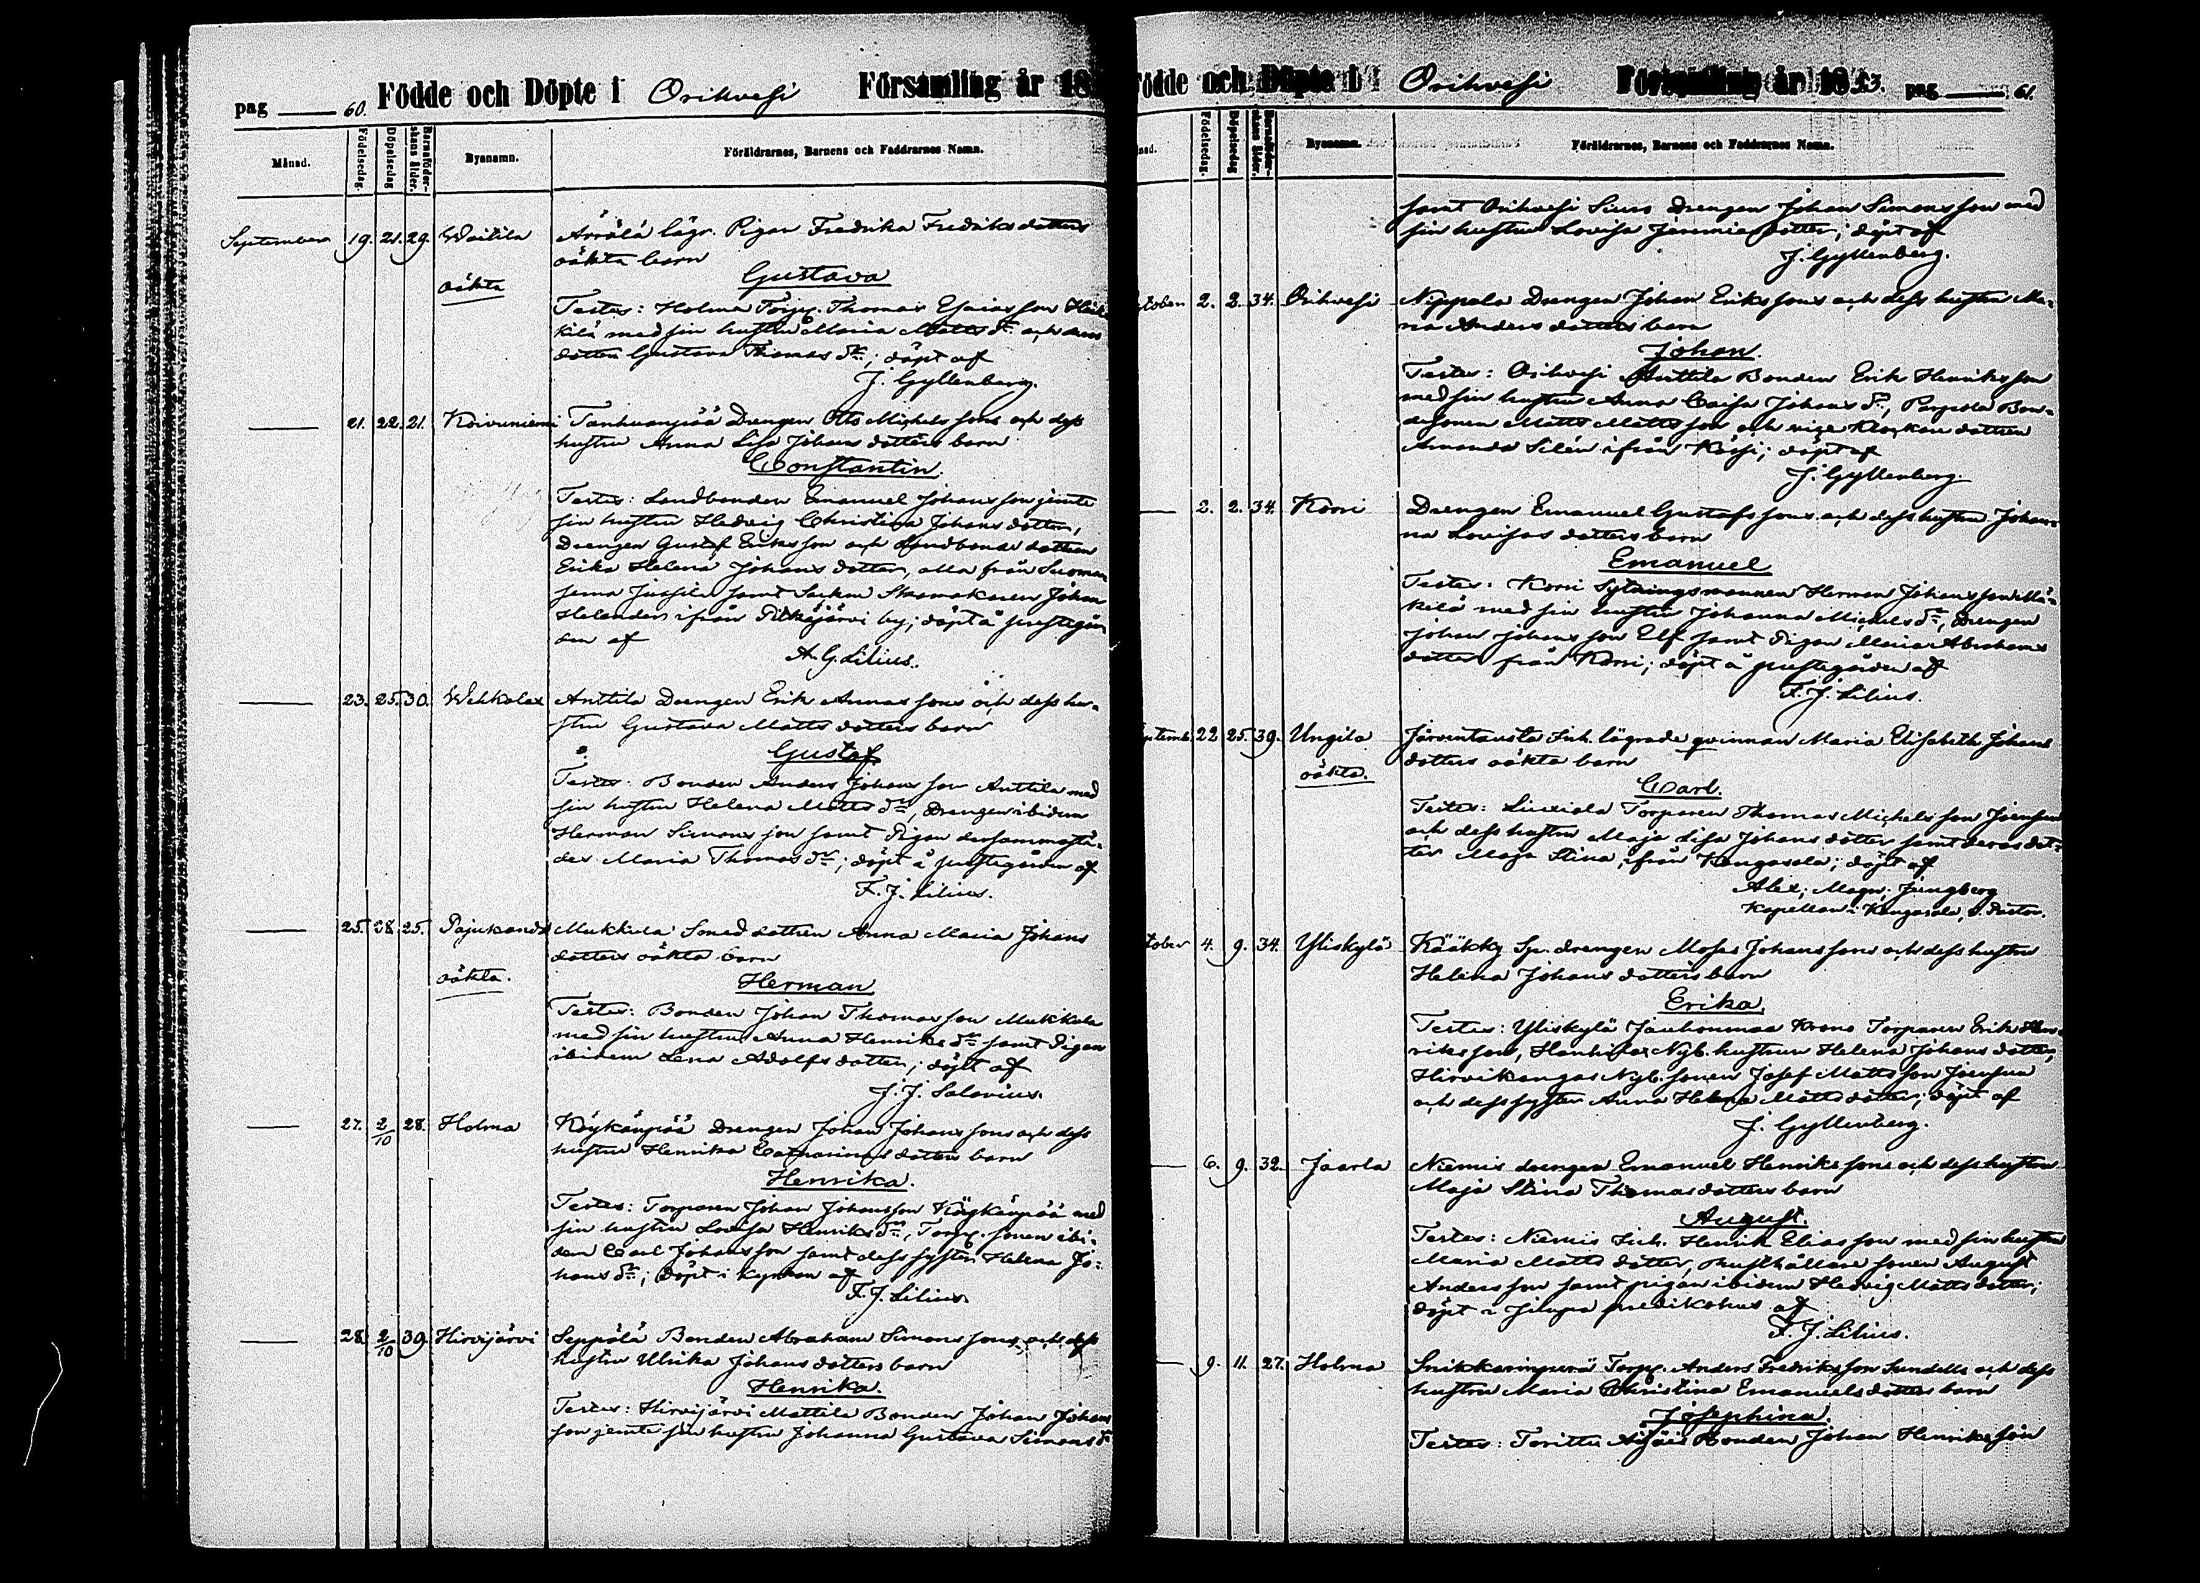 pag 60. Födde och Döpte i Orihvesi Församling år 18
Månad. Födelsedag. Döpelsedag Barnaföderskans ålder. Byanamn. Föräldrarnes, Barnens och Faddrarnes Namn.
September 19. 21. 29. Waitila Arrölä lägr. Pigan Fredrika Fredriksdotters
oäkta barn
oäkta
Gustava
Testes: Holma Torp. Thomas Esaiasson Heik
kilä med sin hustru Maria Matts dr och deras
dotter Gustava Thomas dr; döpt af
J. Gyllenberg.
21. 22. 21. Koivuniemi Tanhuanpää Drengen Otto Michelssons och dess
hustru Anna Lisa Johansdotters barn
Constantin.
Testes: Landbonden Emanuel Johansson jemte
sin hustru Hedvig Christina Johansdotter,
Drengen Gustaf Eriksson och Landbonde dottren
Erika Helena Johansdotter, alla från Suomen
jema Jussila samt Sockne Skomakaren Johan
Helander ifrån Pitkäjärvi by; döpt å prestegår
den af
A. G. Lilius.
23. 25. 30. Wehkalax Anttila Drengen Erik Annassons och dess hu-
stru Gustava Mattsdotters barn
Gustaf
Testes: Bonden Anders Johansson Anttila med
sin hustru Helena Matts dr, Drengen ibidem
Herman Simonsson samt Pigan dersammastä-
des Maria Thomas dr; döpt å prestegården af
F. J. Lilius.
25. 28. 25. Pajukanda Mukkula Smeddottren Anna Maria Johans
dotters oäkta barn
oäkta.
Herman
Testes: Bonden Johan Thomasson Mukkula
med sin hustru Anna Henriks dr samt Pigan
ibidem Lena Adolfsdotter; döpt af
J. J. Salovius.
27. 2/10 28. Holma Köykänpää Drengen Johan Johanssons och dess
hustru Henrika Catharinasdotters barn
Henrika.
Testes: Torparen Johan Johansson Köykänpää med
sin hustru Lovisa Henriks dr, Torp. sonen ibi-
dem Carl Johansson samt dess syster Helena Jo-
hans dr; döpt i kyrkan af
F. J. Lilius.
28. 2/10 39. Hirvijärvi Seppälä Bonden Abraham Simonssons och dess
hustru Ulrika Johansdotters barn
Henrika.
Testes: Hirvijärvi Mattila Bonden Johan Johans
son jemte sin hustru Johanna Gustava Simons dr
Födde och Döpte i Orihvesi Församling år 1853. pag 61.
Födelsedag. Döpelsedag Barnaföderskans ålder. Byanamn. Föräldrarnes, Barnens och Faddrarnes Namn.
samt Orihvesi Siuro Drengen Johan Simonsson med
sin hustru Lovisa Jeremiædotter; döpt af
J. Gyllenberg.
ctober 2. 2. 34. Orihvesi Nippala Drengen Johan Erikssons och dess hustru Ma-
ria Andersdotters barn
Johan.
Testes: Orihvesi Anttila Bonden Erik Henriksson
med sin hustru Anna Caisa Johans dr, Parpola Bon-
desonen Matts Mattsson och vice klockare dottren
Amanda Silén ifrån Kossi; döpt af
J. Gyllenberg.
2. 2. 34. Korri Drengen Emanuel Gustafssons och dess hustru Johan-
na Lovisas dotters barn
Emanuel
Testes: Korri Sytningsmannen Herman Johansson Mä-
kelä med sin hustru Johanna Michels dr, Drengen
Johan Johansson Elf samt Pigan Maria Abrahams
dotter från Korri; döpt å prestegården af
F. J. Lilius.
eptember 22 25. 39. Ungila Järventausta Inh. lägrade qvinnan Maria Elisabeth Johans
dotters oäkta barn
oäkta.
Carl.
Testes: Liuksiala Torparen Thomas Michelsson Joensuu
och dess hustru Maja Lisa Johansdotter samt deras dot-
ter Maja Stina, ifrån Kangasala; döpt af
Alex: Magn: Jungberg
Kapellan i Kangasala, v. Pastor.
tober 4. 9. 34. Yliskylä Kääkky Sp. drengen Moses Johanssons och dess hustru
Helena Johansdotters barn
Erika.
Testes: Yliskylä Jauhonmaa Krono Torparen Erik Hen-
riksson, Nyb. hustrun Helena Johansdotter,
Hirvikangas Nyb. sonen Josef Mattsson Joensuu
och dess syster Anna Helena Mattsdotter; döpt af
J. Gyllenberg.
6. 9. 32. Jaarla Niemis drengen Emanuel Henrikssons och dess hustru
Maja Stina Thomasdotters barn
August.
Testes: Niemis Inh. Henrik Eliasson med sin hustru
Maria Mattsdotter, Rusthållare sonen August
Andersson samt pigan ibidem Hedvig Mattsdotter;
döpt i Jüupa predikohus af
F. J. Lilius.
9. 11. 27. Holma Snikkarinperä Torp. Anders Fredriksson Sundells och dess
hustru Maria Christina Emanuelsdotters barn
Josephina.
Testes: Torittu Äijäis Bonden Johan Henriksson